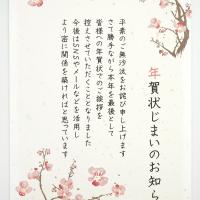 年賀状じまいのお知ら
平素のご無沙汰をお詫び申し上げます
さて勝手ながら本年を最後として
皆様への年賀状でのご挨拶を
控えさせていただくこととなりました
今後はSNSやメールなどを活用し
より密に関係を築ければと思っています